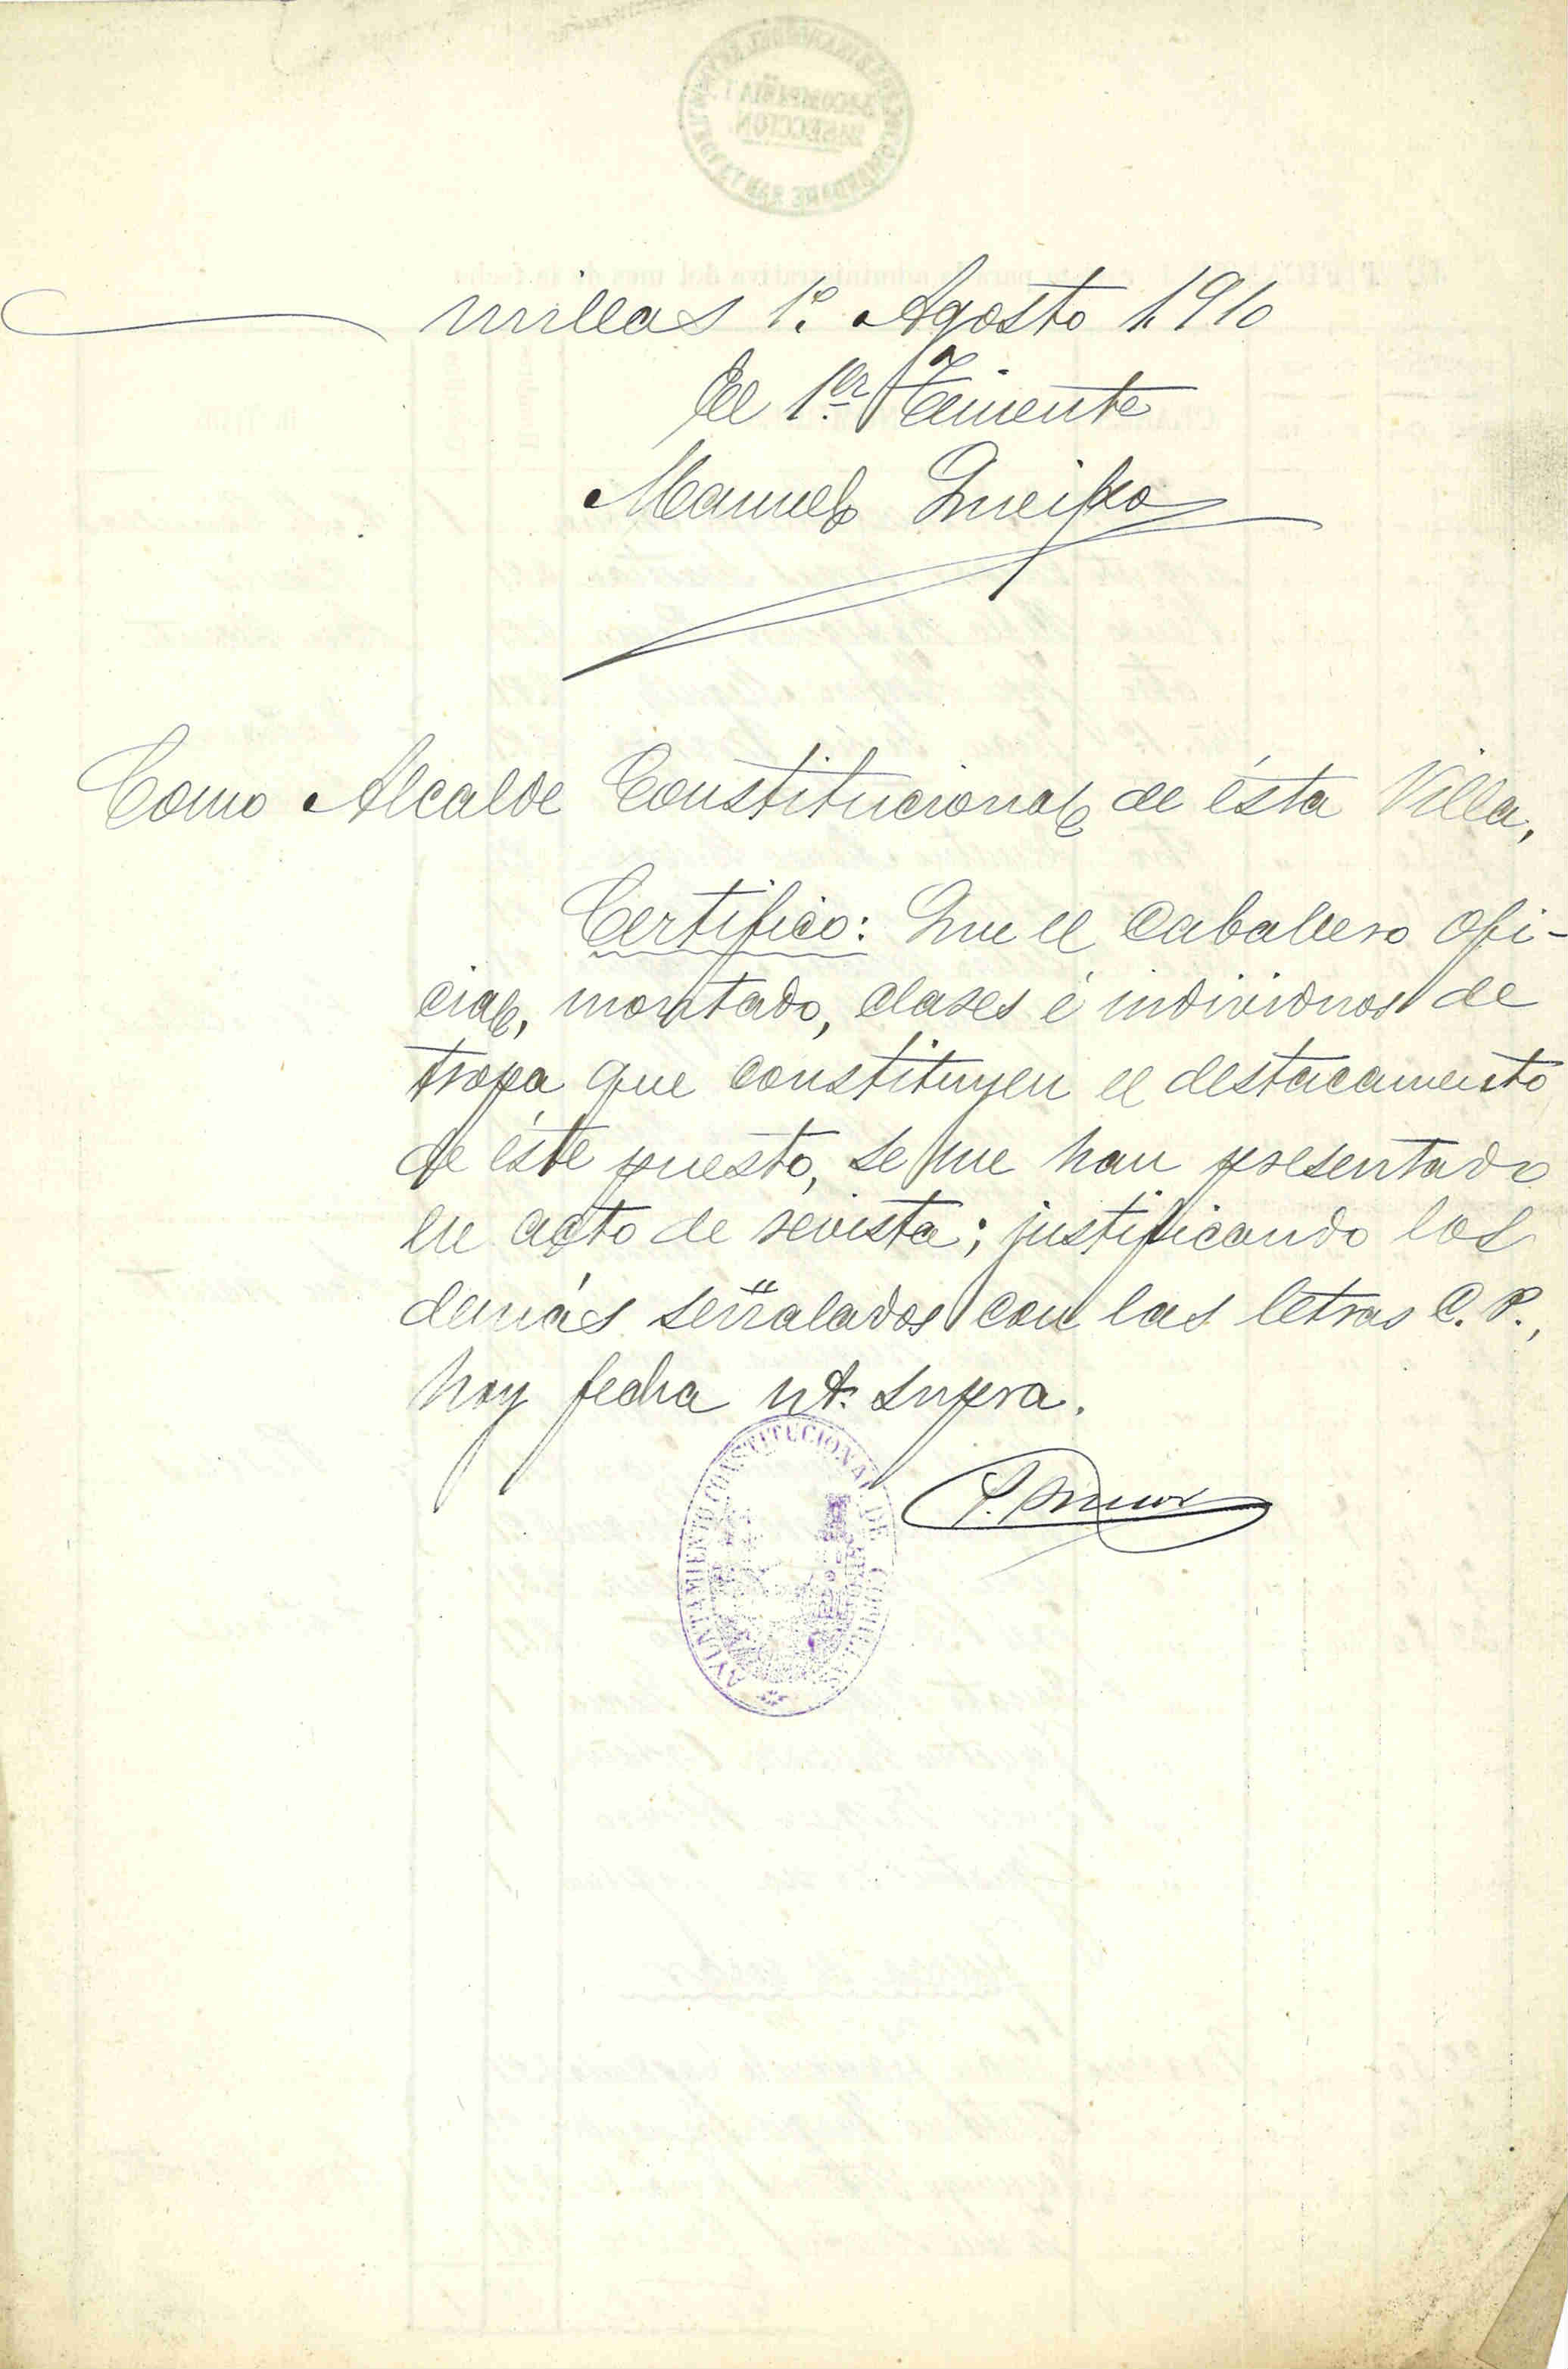 millas 1º Agosto 1.910
El 1er Teniente
Manuel Queipo
Como Alcalde Constitucional de ésta Villa,
Certifico: Que el Caballero Ofi-
cial, montado, clases é individuos de
tropa que constituyen el destacamento
de éste puesto, se me han presentado
en acto de revista; justificando los
demás señalados con las letras C. P.,
hoy fecha ut. supra.
AYUNTAMIENTO CONSTITUCIONAL DE COMILLAS